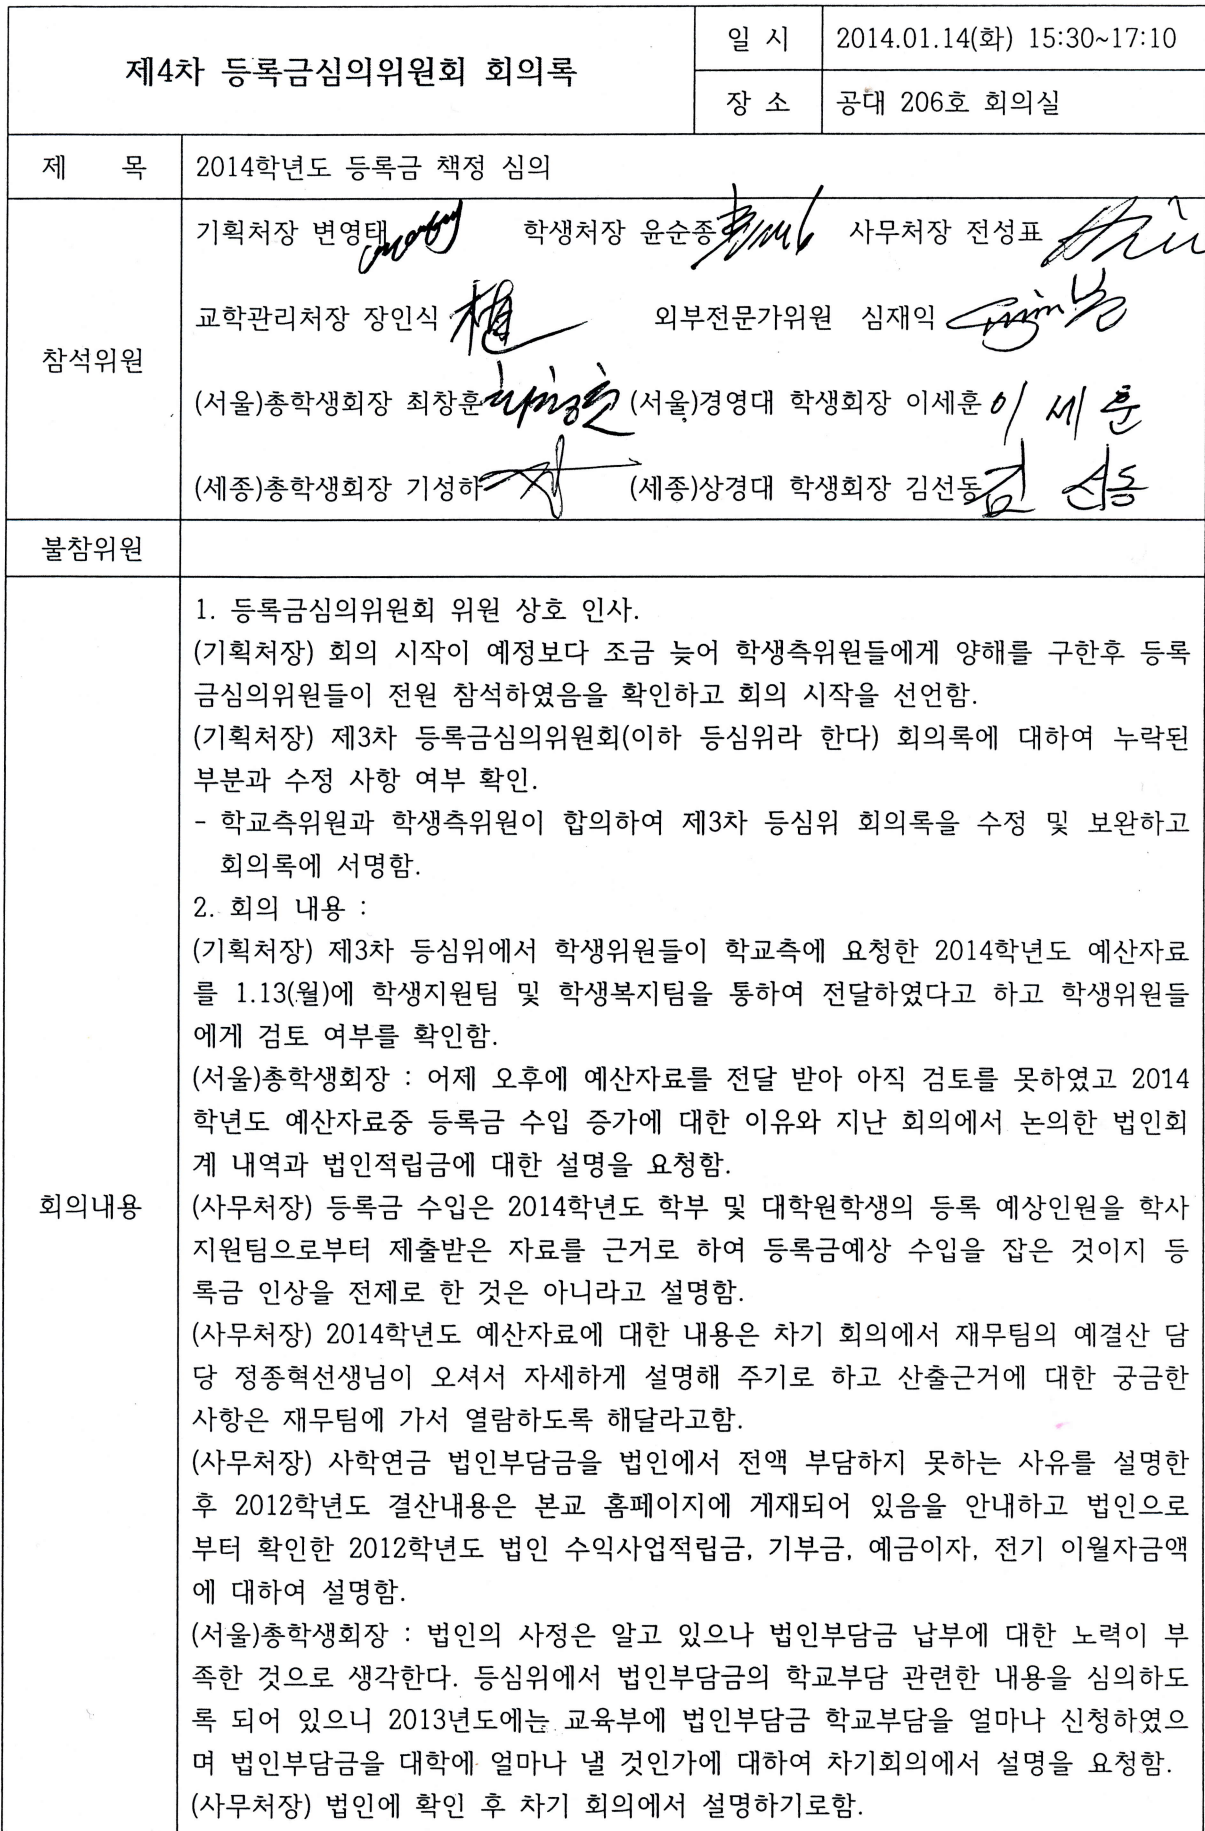 제4차 등록금심의위원회 회의록
일 시
2014.01.14(화) 15:30~17:10
장 소
공대 206호 회의실
제 목
2014학년도 등록금 책정 심의
참석위원
기획처장 변영태 학생처장 윤순종 사무처장 전성표
교학관리처장 장인식 외부전문가위원 심재익
(서울)총학생회장 최창훈 (서울)경영대 학생회장 이세훈 이 세 훈
(세종)총학생회장 기성하 (세종)상경대 학생회장 김선동 김 선동
불참위원
회의내용
1. 등록금심의위원회 위원 상호 인사.
(기획처장) 회의 시작이 예정보다 조금 늦어 학생측위원들에게 양해를 구한후 등록
금심의위원들이 전원 참석하였음을 확인하고 회의 시작을 선언함.
(기획처장) 제3차 등록금심의위원회(이하 등심위라 한다) 회의록에 대하여 누락된
부분과 수정 사항 여부 확인.
- 학교측위원과 학생측위원이 합의하여 제3차 등심위 회의록을 수정 및 보완하고
회의록에 서명함.
2. 회의 내용 :
(기획처장) 제3차 등심위에서 학생위원들이 학교측에 요청한 2014학년도 예산자료
를 1.13(월)에 학생지원팀 및 학생복지팀을 통하여 전달하였다고 하고 학생위원들
에게 검토 여부를 확인함.
(서울)총학생회장 : 어제 오후에 예산자료를 전달 받아 아직 검토를 못하였고 2014
학년도 예산자료중 등록금 수입 증가에 대한 이유와 지난 회의에서 논의한 법인회
계 내역과 법인적립금에 대한 설명을 요청함.
(사무처장) 등록금 수입은 2014학년도 학부 및 대학원학생의 등록 예상인원을 학사
지원팀으로부터 제출받은 자료를 근거로 하여 등록금예상 수입을 잡은 것이지 등
록금 인상을 전제로 한 것은 아니라고 설명함.
(사무처장) 2014학년도 예산자료에 대한 내용은 차기 회의에서 재무팀의 예결산 담
당 정종혁선생님이 오셔서 자세하게 설명해 주기로 하고 산출근거에 대한 궁금한
사항은 재무팀에 가서 열람하도록 해달라고함.
(사무처장) 사학연금 법인부담금을 법인에서 전액 부담하지 못하는 사유를 설명한
후 2012학년도 결산내용은 본교 홈페이지에 게재되어 있음을 안내하고 법인으로
부터 확인한 2012학년도 법인 수익사업적립금, 기부금, 예금이자, 전기 이월자금액
에 대하여 설명함.
(서울)총학생회장 : 법인의 사정은 알고 있으나 법인부담금 납부에 대한 노력이 부
족한 것으로 생각한다. 등심위에서 법인부담금의 학교부담 관련한 내용을 심의하도
록 되어 있으니 2013년도에는 교육부에 법인부담금 학교부담을 얼마나 신청하였으
며 법인부담금을 대학에 얼마나 낼 것인가에 대하여 차기회의에서 설명을 요청함.
(사무처장) 법인에 확인 후 차기 회의에서 설명하기로함.